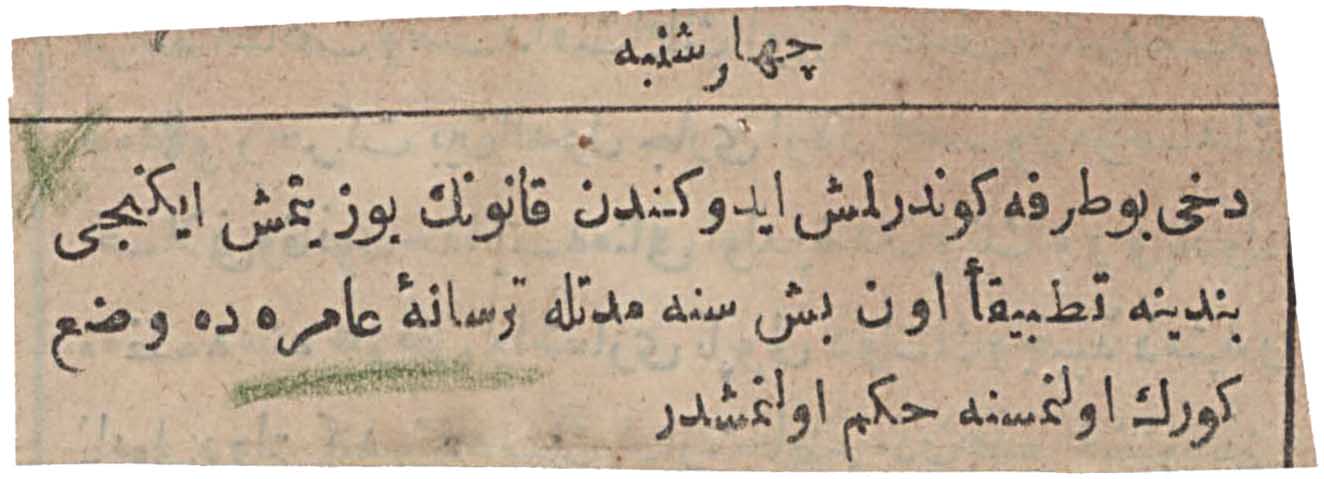 چهارشنبه
دخی بو طرفه كوندرلمش ایدوكندن قانونك یوز یتمش ایكنجی
بندینه تطبیقاً اون بش سنه مدتله ترسانهٔ عامره ده وضع
كورك اولنمسنه حكم اولنمشدر